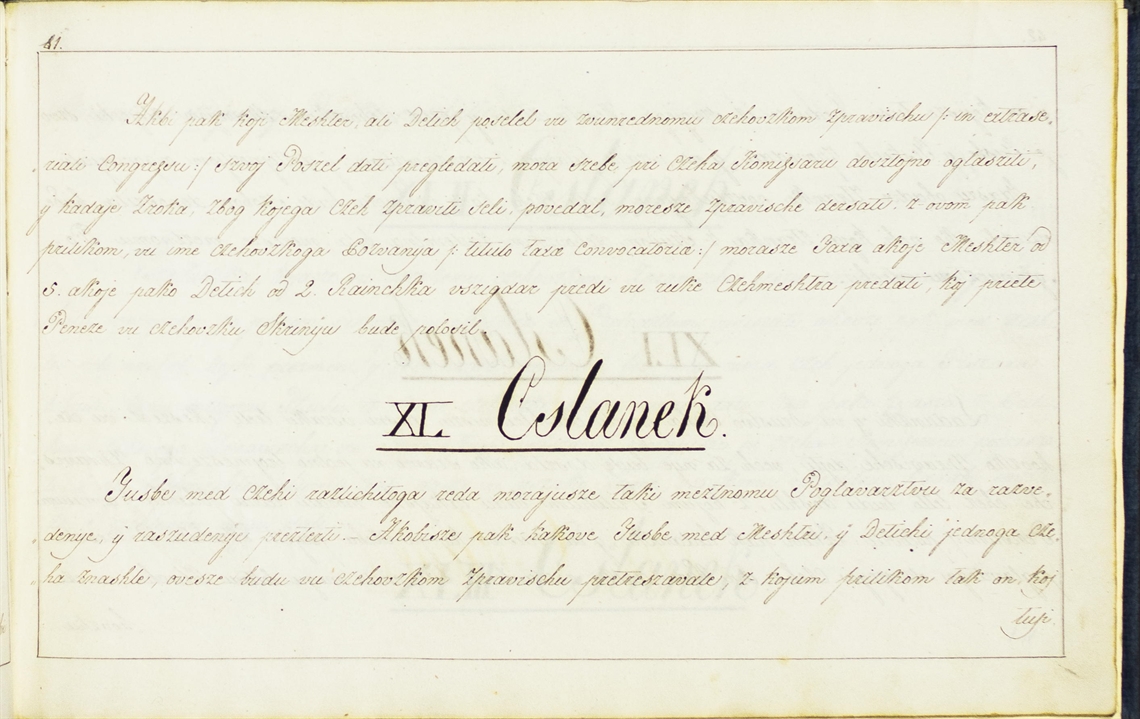 41.
Akbi pak koji Meshter, ali Detich poselel vu zvunrednomu czehovzkom Zpravischu /: in extrase-
riali Congrezsu :/ szvoj Poszel dati pregledati, mora szebe pri Czeha Komiszaru dosztojno oglasziti,
ÿ kadaje Zroka, zbog kojega Czeh Zpraviti seli, povedal, moresze Zpravische dersati. z-ovom pak
prilikom, vu ime czehovzkoga Bozvanija /: titulo taxæ convocatoriæ :/ morasze Taxa akoje Meshter od
5. akoje pako Detich od 2. Rainchka vszigdar predi vu ruke Czehmeshtra predati, koj priete
Peneze vu czehovzku Skriniju bude polosil.
XL Cslanek.
Tusbe med Czehi razlichitoga reda morajusze taki mesztnomu Poglavarztvu za razve-
denje, ÿ raszudenje prezterti. – Akobisze pak kakove Tusbe med Meshtri ÿ Detichi jednoga Cze-
ha znashle, ovesze budu vu czehovzkom Zpravischu pretreszavale, z-kojum prilikom tak on, koj
tusi